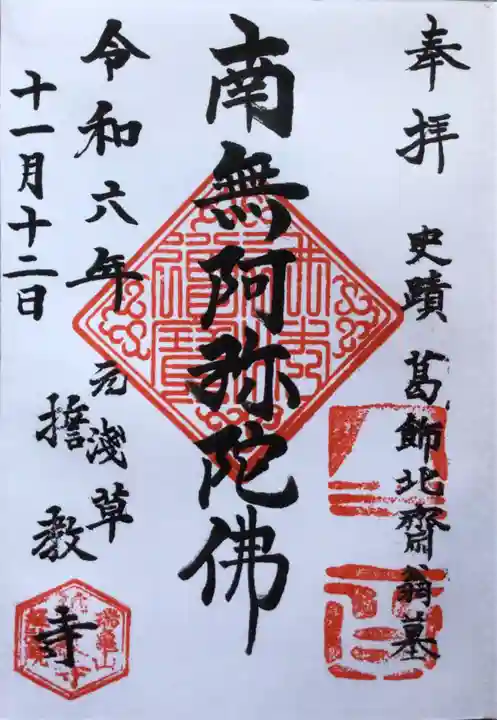 奉拝 史蹟 葛飾北齋翁墓
南無阿弥陀佛
令和六年
十一月十二日
元浅草
誓教寺